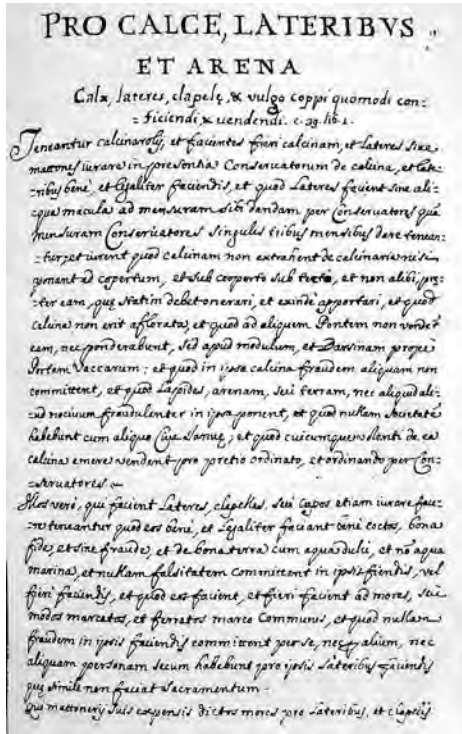 PRO CALCE, LATERIBVS
ET ARENA
Calx, lateres, clapelę, & vulgo coppi quomodi con=
=ficiendi, & vendendi. c. 39. lib. 1.
Teneantur calcinarolij, et facientes fieri calcinam, et Lateres sive
mattones iurare in presentia Conservatorum de calcina, et late=
=ribus benè, et legaliter faciendis, et quod Lateres facient sine ali=
=qua macula ad mensuram sibi dandam per Conservatores quā
mensuram Conservatores singulis tribus mensibus dare tenean=
=tur, et iurent quod calcinam non extrahent de calcinaria nisi
ponant ad copertum, et sub cooperto sub tecto, et non alibi, prę=
=ter eam, quę statim debet onerari, et exinde apportari, et quod
calcina non erit afflorata, et quod ad aliquem Pontem non vendēt
eam, nec ponderabunt, sed apud modulum, et Darsinam propè
Portem Vaccarum; et quod in ipsa calcina fraudem aliquam non
committent, et quod Lapides, arenam, seù terram, nec aliquid ali=
=ud nocivum fraudulenter in ipsa ponent, et quod nullam societatē
habebunt cum aliquo Cive Januę; et quod cuicumque volenti de ea
calcina emere vendent pro pretio ordinato, et ordinando per Con=
=servatores
Illos verò, qui facient Lateres, clapellas, seù Cupos etiam iurare face=
=re teneantur quod eos benè, et Legaliter faciant benè coctos, bona
fide, et sine fraude, et de bona terra cum aqua dulci, et nō aqua
marina, et nullam falsitatem committent in ipsis fiendis, vel
fieri faciendis, et quod eos facient, et fieri facient ad mores, sive
modos marcatos, et ferratos marco Communis, et quod nullam
fraudem in ipsis faciendis committent per se, nec alium, nec
aliquam personam secum habebunt pro ipsis Lateribus faciendis
quę simile non faciat sacramentum.
Qui mattonerij suis expensis dictos mores pro Lateribus, et clapelis